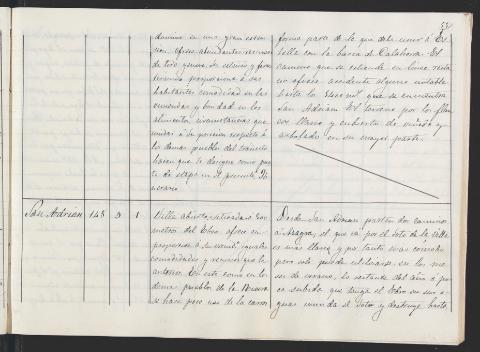 53
domina en una gran esten-
sion, ofrece abundantes recursos
de todo genero. Su caserio y fertil
termino proporciona a sus
habitantes comodidad en las
viviendas y bondad en los
alimentos, circunstancias que
unidas a su posicion respecto á
los demas pueblos del transito
hacen que se designe como pun-
to de etapa en el presente Iti-
nerario
forma parte de la que debe unir á Es-
tella con la barca de Calahorra. El
camino que se estiende en linea recta
no ofrece accidente alguno notable
hasta la que se encuentra
San Adrian. El terreno por los flan-
cos llano y cubierto de viñedo y
arbolado en su mayor parte.
San Adrian 148 2 1
Villa abierta, situada a 800
metros del Ebro, ofrece en
proporcion á su vecind. iguales
comodidades y recursos que la
anterior. En esta como en los
demas pueblos de la Rivera
se hace poco uso de la carne
Desde San Adrian parten dos caminos
á Azagra, el que va por el soto de la Villa
es mas llano, y por tanto mas comodo
pero solo puede utilizarse en los me-
ses de verano. Lo restante del año á po-
ca subida que tenga el Ebro en sus a-
guas inunda el soto y destruye hasta